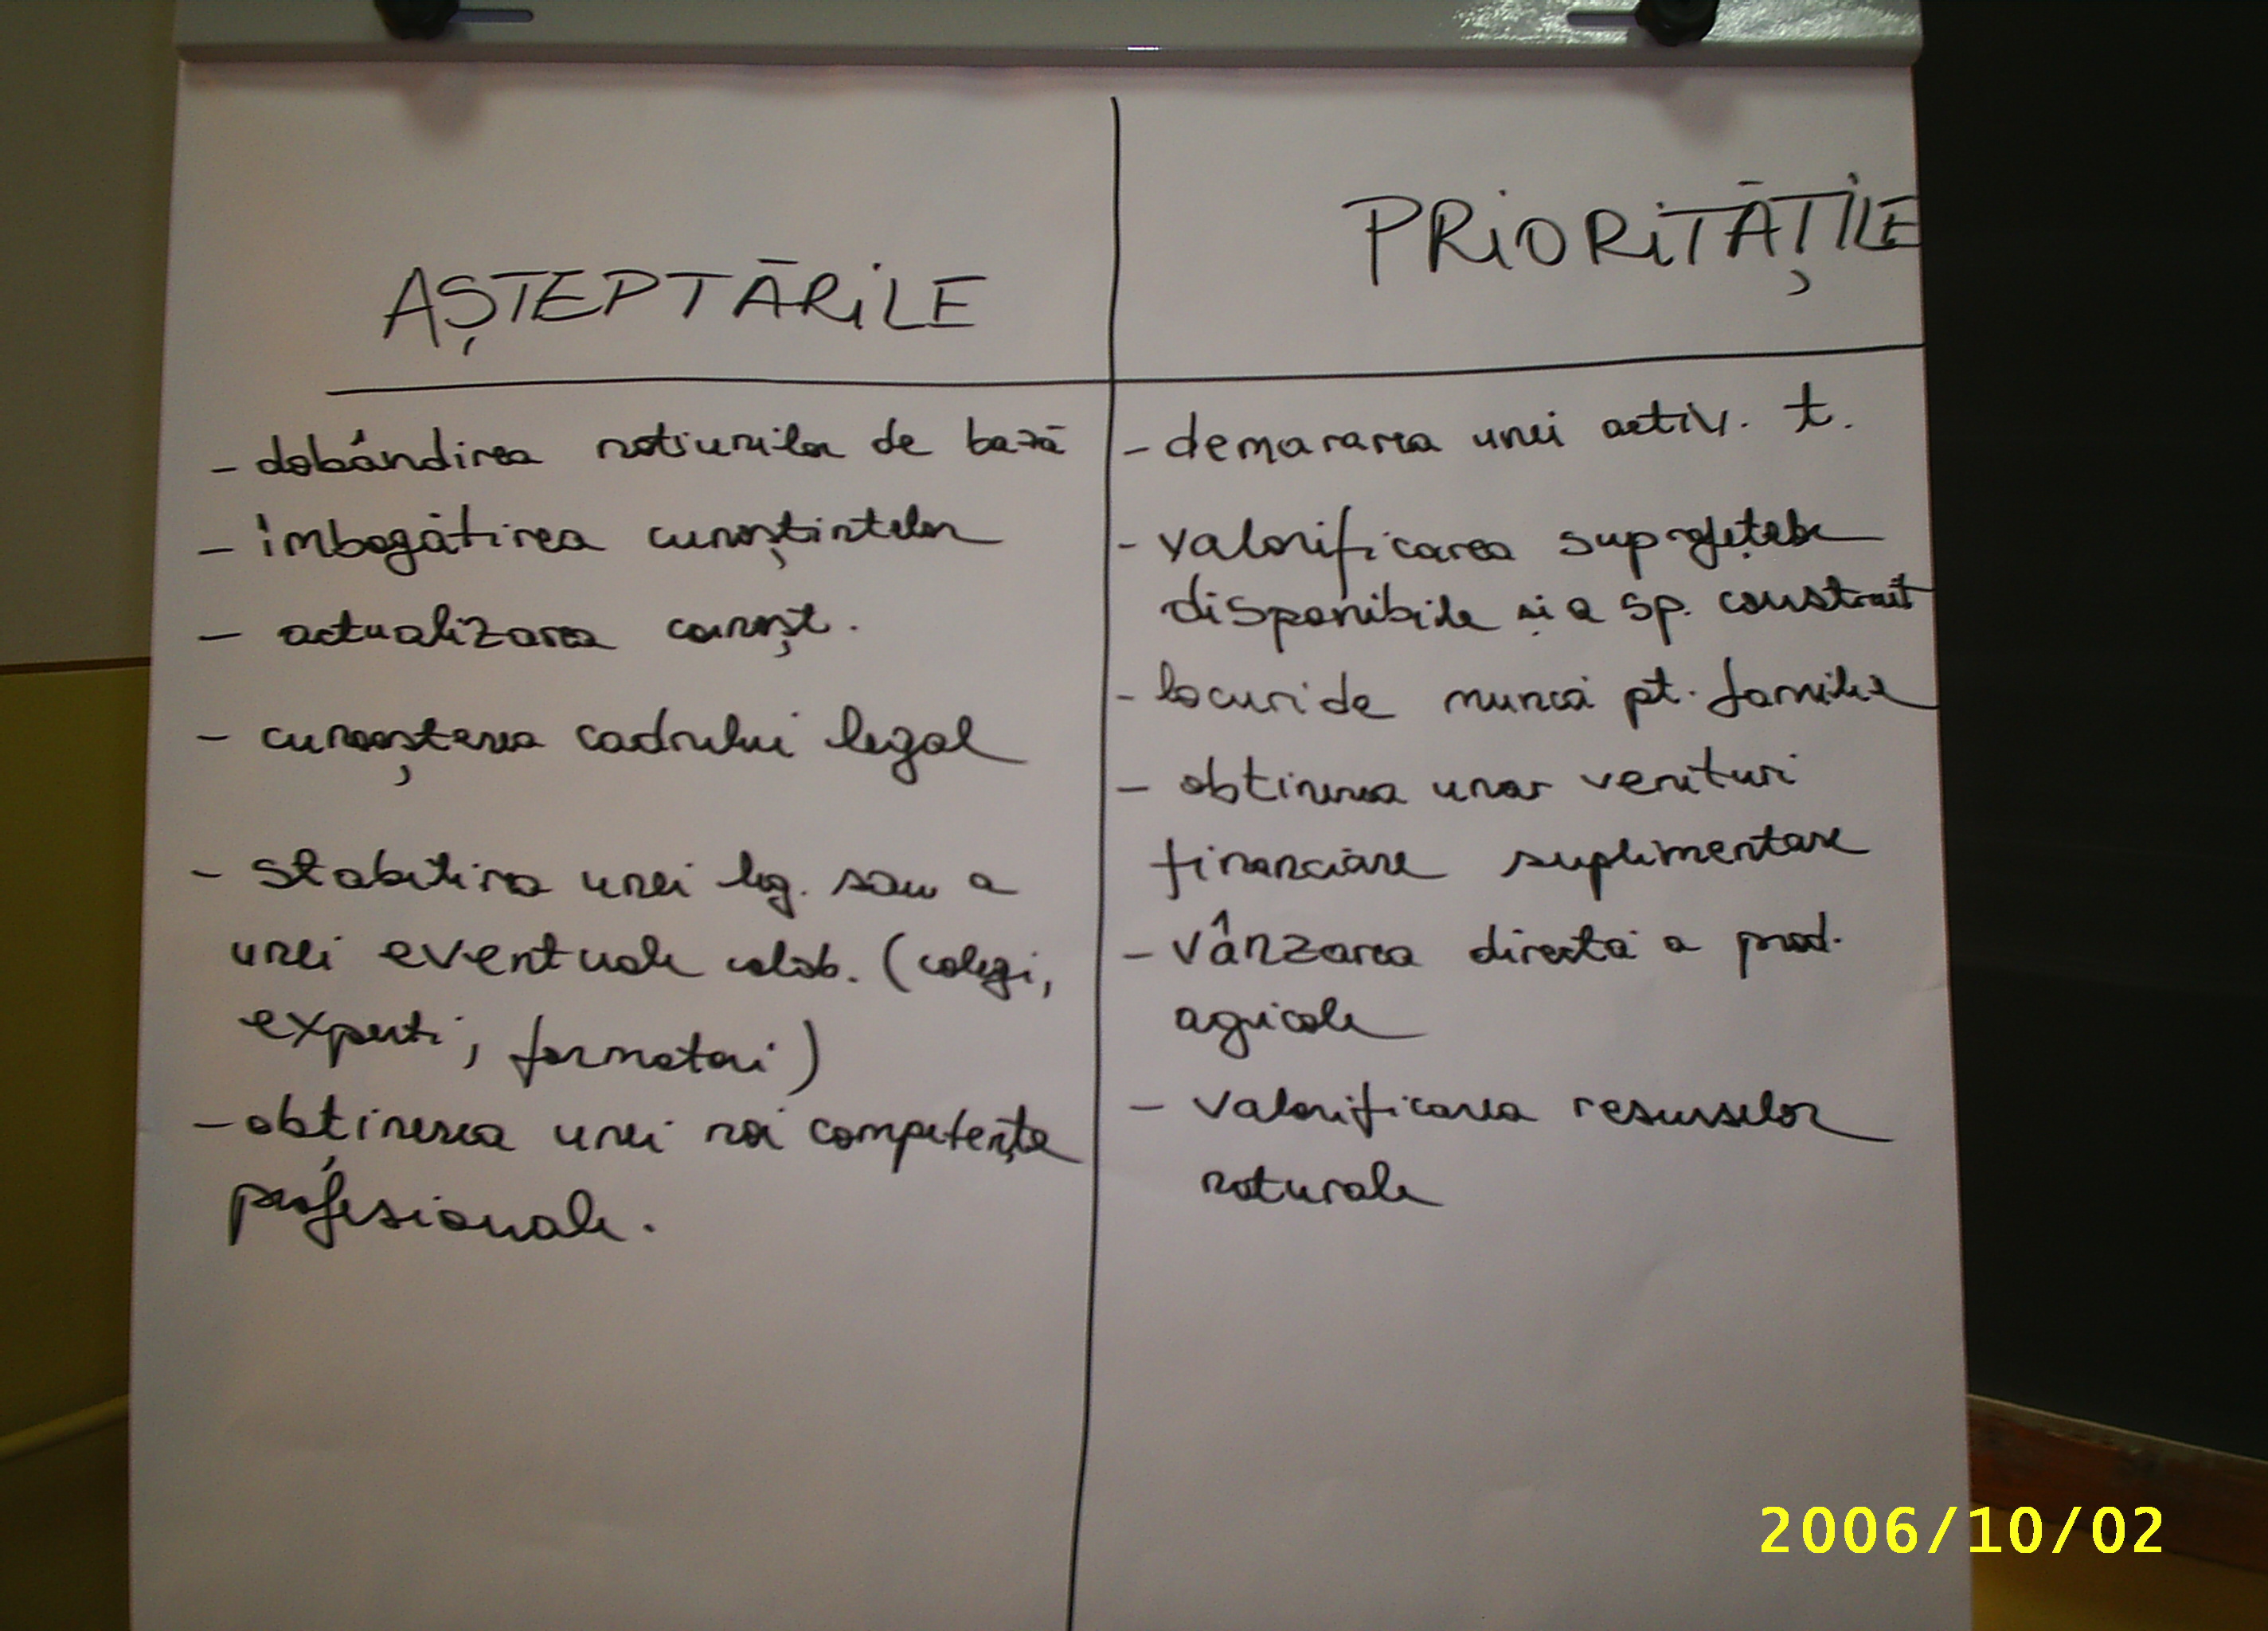 AȘTEPTĂRILE
- dobândirea notiunilor de bază
- îmbogătirea cunoștintelor
- actualizarea cunoșt.
- cunoașterea cadrului legal
- stabilirea unei leg. sau a
unei eventuale colab. (colegi,
experti, formatori)
- obținerea unei noi competențe
profesionale.
PRIORITĂȚILE
- demararea unei activ. t.
- valorificarea suprafețelor
disponibile și a sp. construit
- locuri de muncă pt. familie
- obtinerea unor venituri
financiare suplimentare
- vânzarea directă a prod.
agricole
- valorificarea resurselor
naturale
2006/10/02